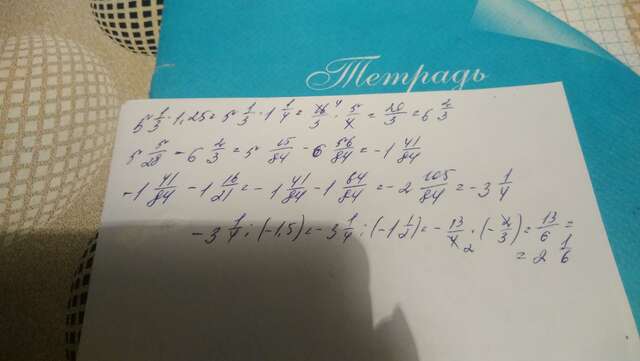 Тетрадь
5 1/3 · 1,25 = 5 1/3 · 1 1/4 = 16/3 · 5/4 = 20/3 = 6 2/3
5 5/28 - 6 2/3 = 5 15/84 - 6 56/84 = -1 41/84
-1 41/84 - 1 16/21 = -1 41/84 - 1 64/84 = -2 105/84 = -3 1/4
-3 1/4 : (-1,5) = -3 1/4 : (-1 1/2) = - 13/4 · (- 2/3) = 13/6 =
= 2 1/6